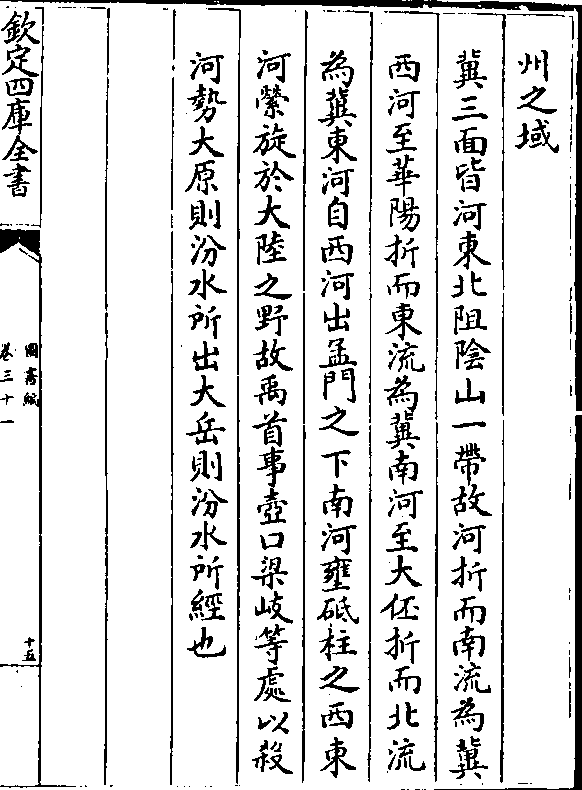 州之域
冀三面皆河東北阻陰山一帶故河折而南流為冀
西河至華陽折而東流為冀南河至大伾折而北流
為冀東河自西河出孟門之下南河壅砥柱之西東
河縈旋於大陸之野故禹首事壺口梁岐等處以殺
河勢大原則汾水所出大岳則汾水所經也
欽定四庫全書
圖書編
卷三十一
十五